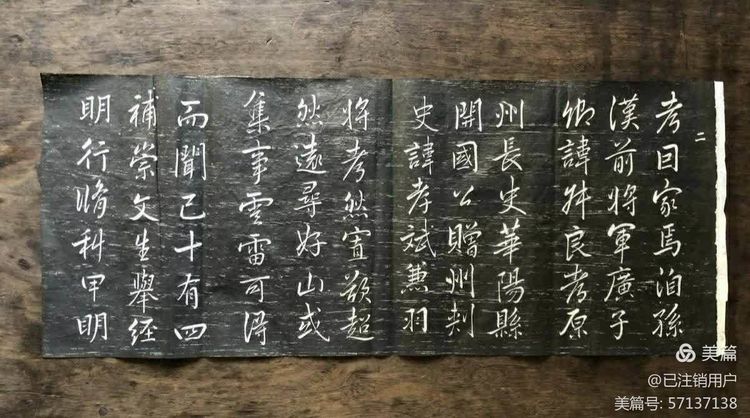 二
考回家焉洎孫
漢前將軍廣子
卿諱昇良考原
州長史華陽縣
開國公贈州刺
史諱孝斌兼羽
將考然寘歎超
然遠尋好山或
集事雲雷可得
而聞已十有四
補崇文生舉經
明行脩科甲明
美篇
@已注销用户
美篇号: 57137138